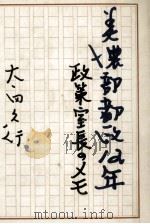 美濃部都政12年
政策室長のメモ
太田久行